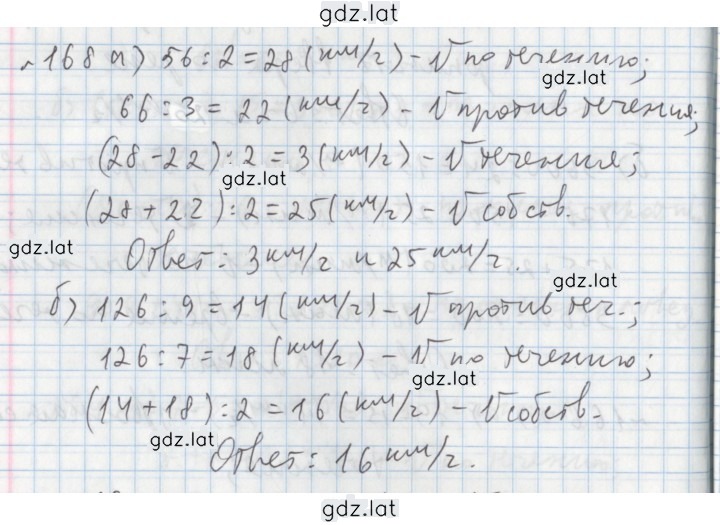 gdz.lat
168 а) 56 : 2 = 28 (км/г) - V по течению;
gdz.lat
66 : 3 = 22 (км/г) - V против течения;
(28 - 22) : 2 = 3 (км/г) - V течения;
gdz.lat
(28 + 22) : 2 = 25 (км/г) - V собств.
gdz.lat
Ответ: 3 км/г и 25 км/г.
gdz.lat
б) 126 : 9 = 14 (км/г) - V против теч.;
126 : 7 = 18 (км/г) - V по течению;
gdz.lat
(14 + 18) : 2 = 16 (км/г) - V собств.
gdz.lat
Ответ: 16 км/г.
gdz.lat